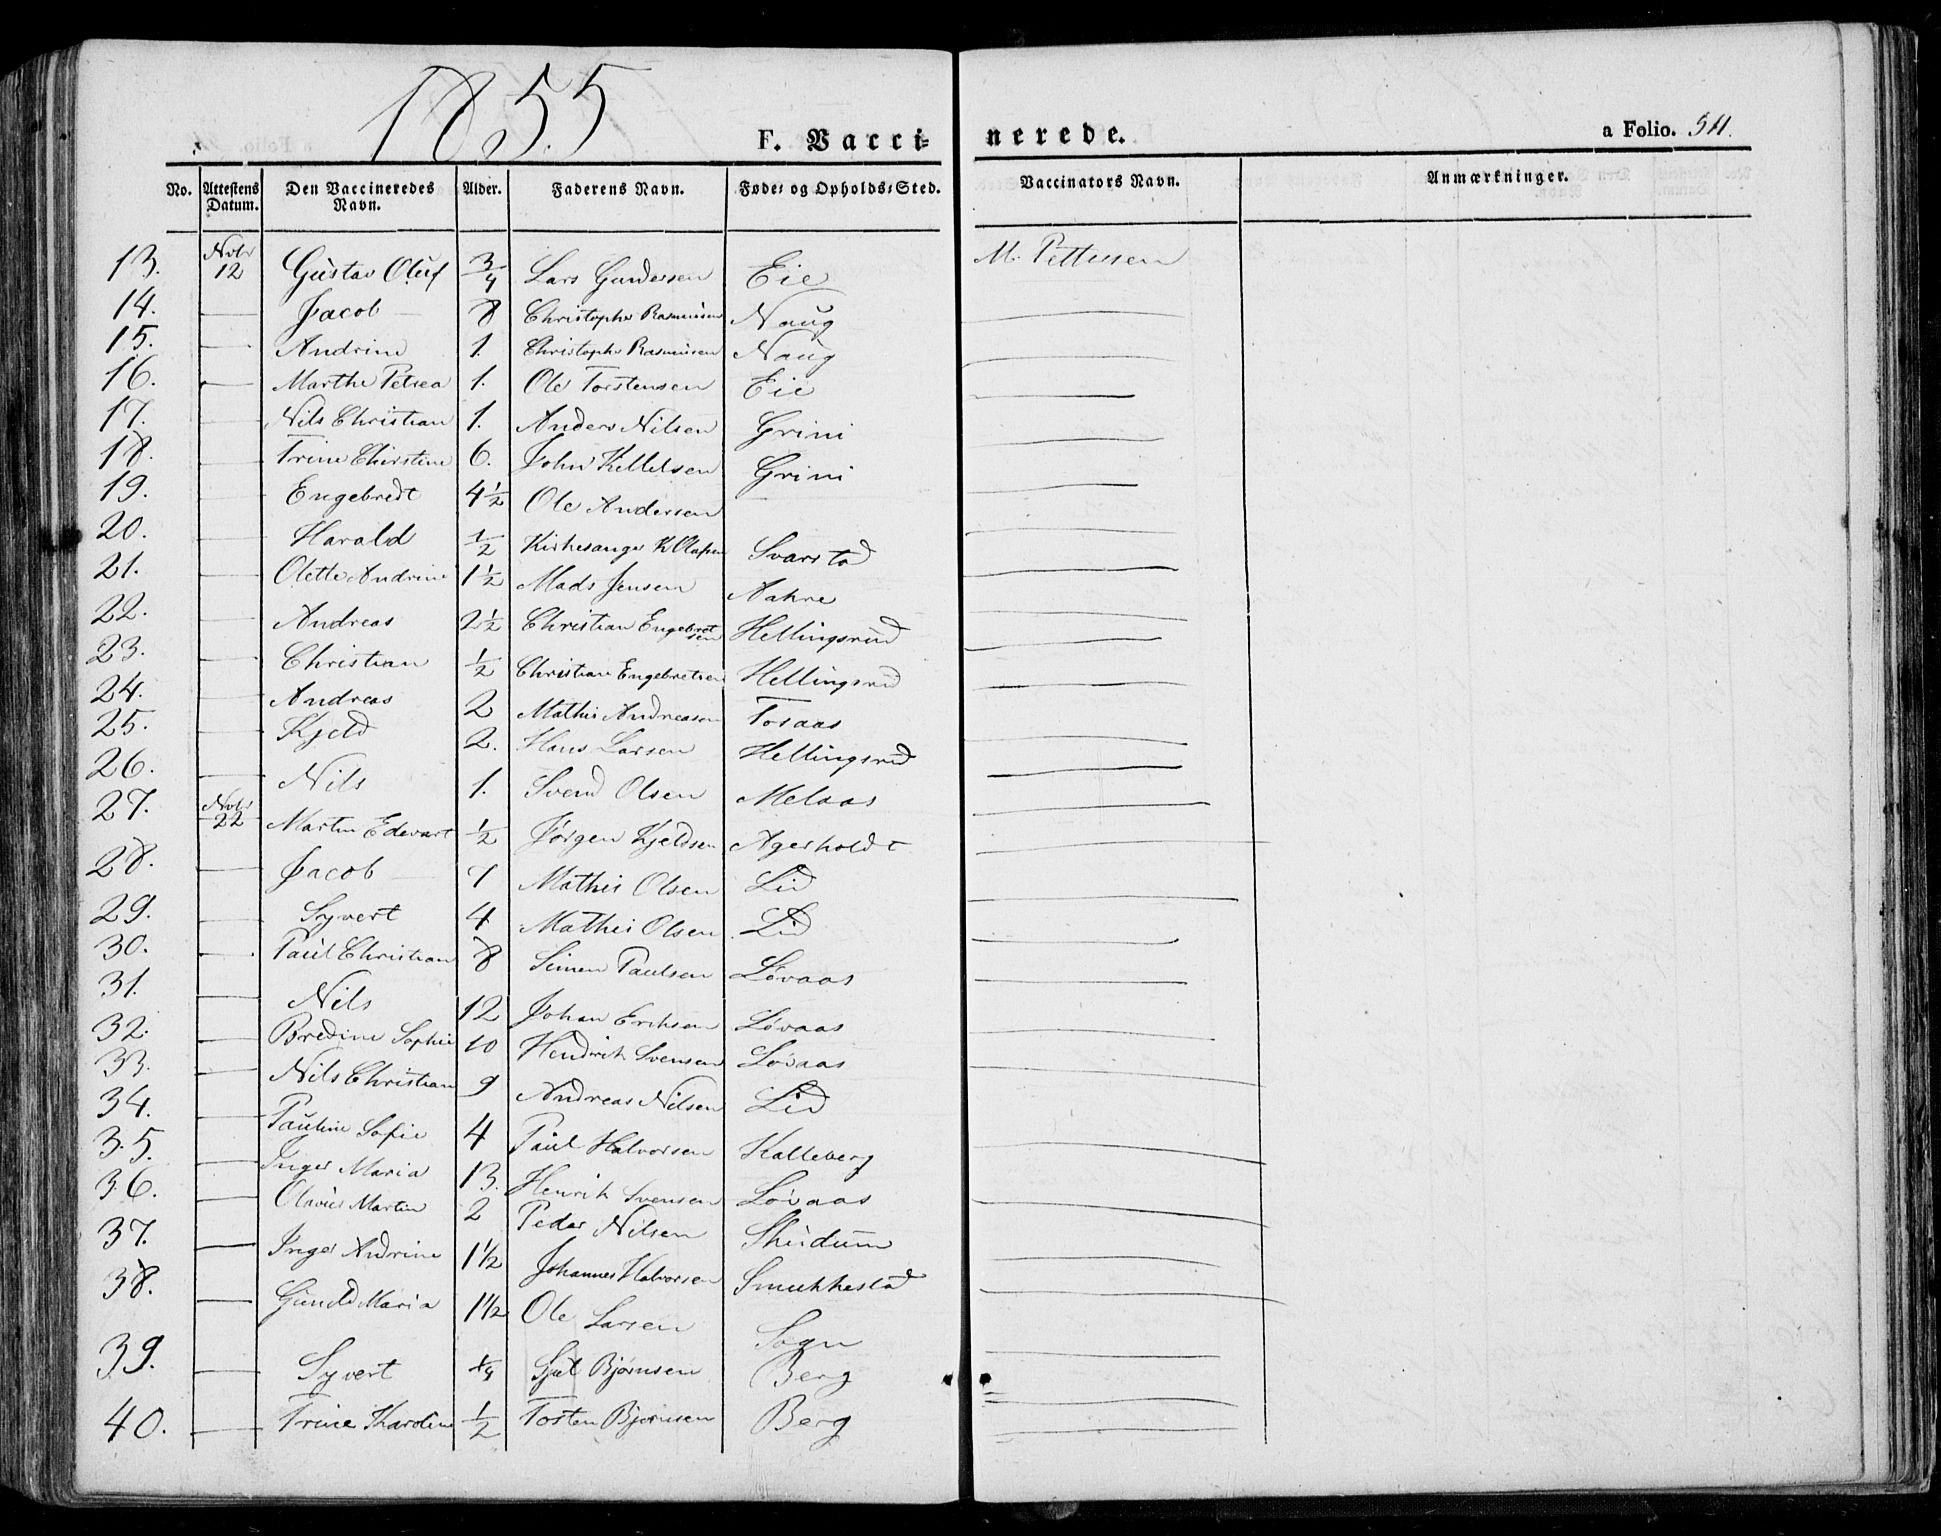 1855.
F. Vaccinerede.
a Folio. 511.
No. Attestens Datum. Den Vaccineredes Navn. Alder. Faderens Navn. Føde- og Opholds-Sted. Vaccinators Navn. Anmærkninger.
13. Nobr 12 Gustav Oluf 3/4 Lars Gundersen Eie M. Pettersen
14. — Jacob — 8 Christopher Rasmussen Naug —
15. — Andrine 1. Christopher Rasmussen Naug —
16. — Marthe Petrea 1. Ole Torstensen Eie —
17. — Nils Christian 1. Anders Nilsen Grini —
18. — Trine Christine 6. John Kettelsen Grini —
19. — Engebredt 4 1/2 Ole Andersen —
20. — Harald 1/2 Kirkesanger K Olafsen Svarstad —
21. — Olette Andrine 1 1/2 Mads Jensen Aakre —
22. — Andreas 2 1/2 Christian Engebretsen Hellingsrud —
23. — Christian 1/2 Christian Engebretsen Hellingsrud —
24. — Andreas 2 Mathis Andreasen Tosaas —
25. — Kjeld 2. Hans Larsen Hellingsrud —
26. — Nils 1. Svend Olsen Melaas —
27. Nobr 22 Martin Edevart 1/2 Jørgen Kjeldsen Agerholdt —
28. — Jacob — 7 Mathis Olsen Lid —
29. — Syvert 4 Mathis Olsen Lid —
30. — Paul Christian 8 Simen Paulsen Løvaas —
31. — Nils 12 Johan Eriksen Løvaas —
32. — Bredine Sophie 10 Hendrik Svensen Løvaas —
33. — Nils Christian 9 Andreas Nilsen Lid —
34. — Pauline Sofie 4 Paul Halvorsen Kalleberg —
35. — Inger Maria 13. Henrik Svensen Løvaas —
36. — Olavus Martin 2 Peder Nilsen Skudum —
37. — Inger Andrine 1 1/2 Johannes Halvorsen Smukkestad —
38. — Gunild Maria 1 1/2 Ole Larsen Sogn —
39. — Syvert 1/4 Bjørnsen Berg —
40. — Trine Karoline 1/2 Tosten Bjørnsen Berg —